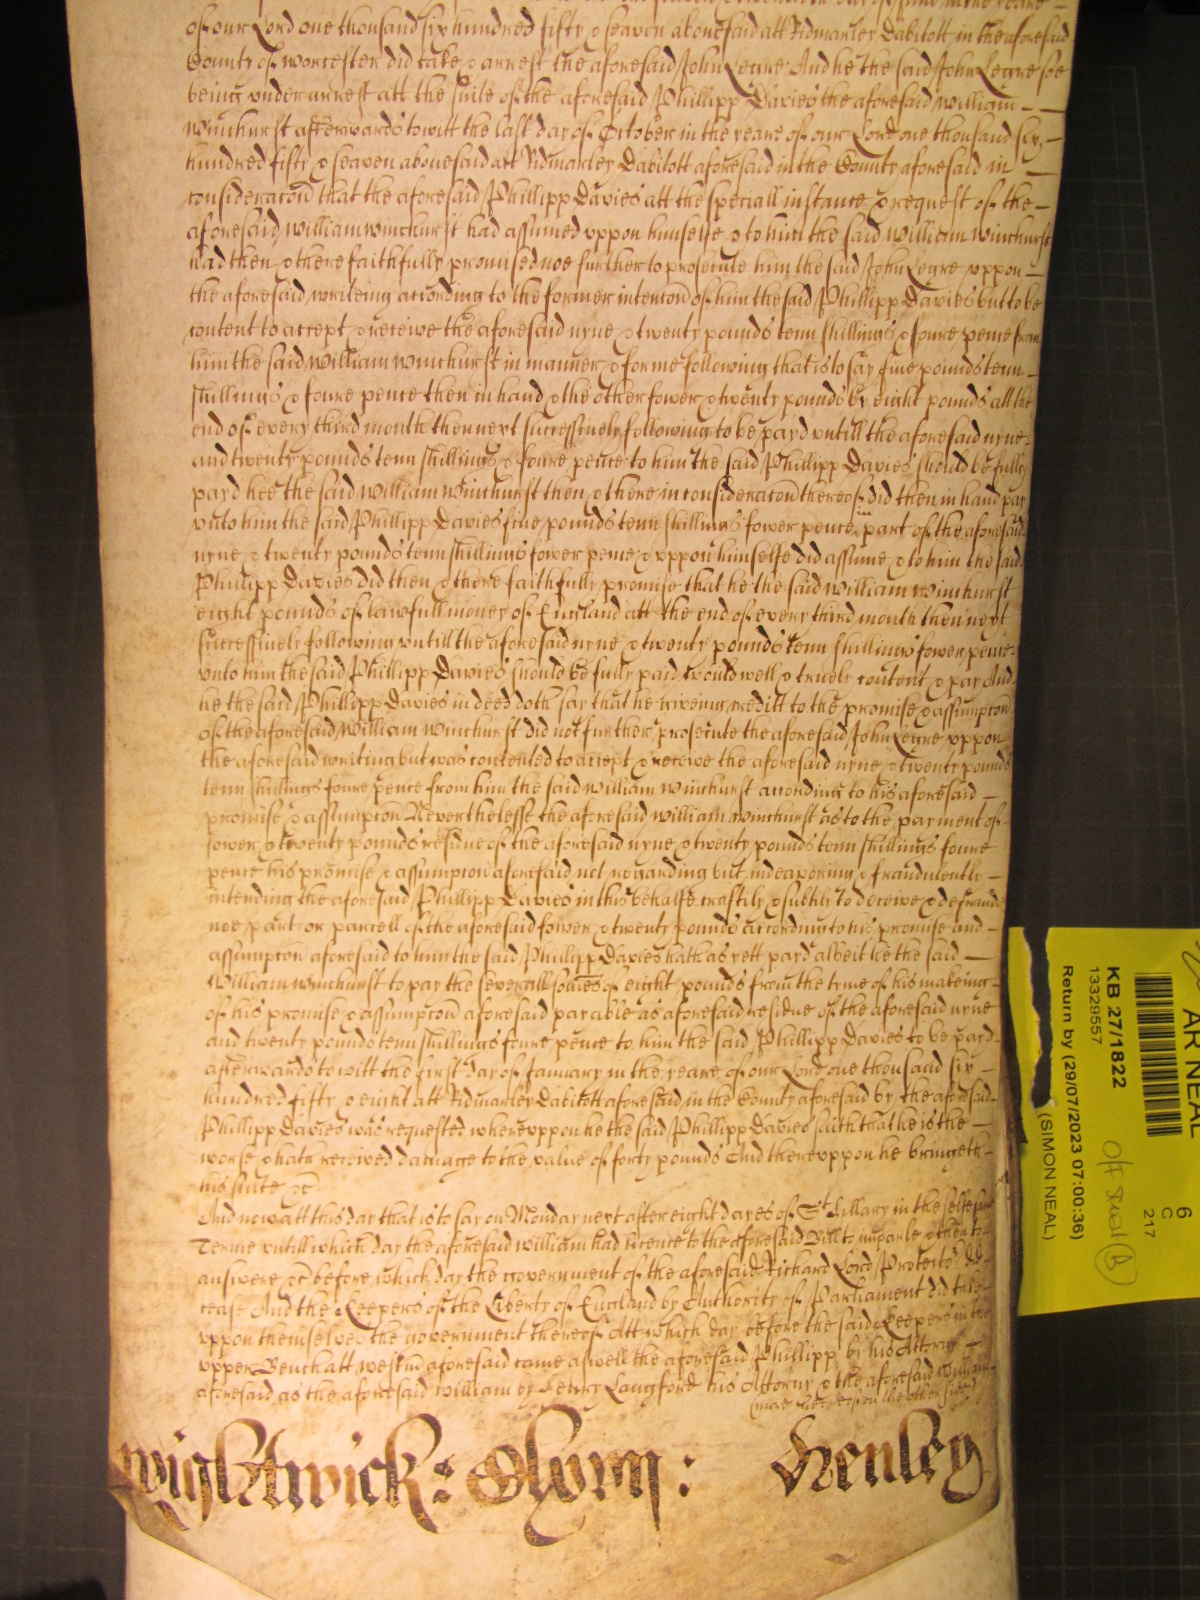 of our Lord one thousand six hundred fifty & seaven abovesaid att Ridmarley Dabitott in the aforesaid
County of worcester did take & arrest the aforesaid John Legre And he the said John Legre soe
being under arrest att the suite of the aforesaid Phillipp Davies the aforesaid William
Winchurst afterwards to witt the last day of October in the yeare of our Lord one thousand six
hundred fifty & seaven abovesaid att Ridmarley Dabitott aforesaid in the County aforesaid in
consideracon that the aforesaid Phillipp Davies att the speciall instance & request of the
aforesaid William Winchurst had assumed uppon himselfe & to him the said William Winchurst
had then & there faithfully promised noe further to prosecute him the said John Legre uppon
the aforesaid writeing according to the former intencon of him the said Phillipp Davies but to be
content to accept & receive the aforesaid nyne & twenty pounds tenn shillings & foure pence from
him the said William Winchurst in manner & forme following that is to say five pounds tenn
shillings & foure pence then in hand & the other fower & twenty pounds by eight pounds all the
end of every third month then next successively following to be payd untill the aforesaid nyne
and twenty pounds tenn shillings & foure pence to him the said Phillipp Davies should be fully
payd hee the said William Winchurst then & there in consideracon thereof did then in hand pay
unto him the said Phillipp Davies five pounds tenn shillings fower pence in part of the aforesaid
nyne & twenty pounds tenn shillings fower pence & uppon himselfe did assume & to him the said
Phillipp Davies did then & there faithfully promise that he the said William Winchurst
eight pounds of lawfull money of England att the end of every third month then next
successively following untill the aforesaid nyne & twenty pounds tenn shillings fower pence
unto him the said Phillipp Davies should be fully paid would well & truely content & pay And
he the said Phillipp Davies in deed doth say that he giveing creditt to the promise & assumpcon
of the aforesaid William Winchurst did not further prosecute the aforesaid John Legre uppon
the aforesaid writing but was contented to accept & receive the aforesaid nyne & twenty pounds
tenn shillings foure pence from him the said William Winchurst according to his aforesaid
promise & assumpcon Neverthelesse the aforesaid William Winchurst as to the payment of
fower & twenty pounds residue of the aforesaid nyne & twenty pounds tenn shillings foure
pence his promise & assumpcon aforesaid not regarding but indeavoring & fraudulently
intending the aforesaid Phillipp Davies in this behalfe craftily & subtily to deceive & defraud
noe part or parcell of the aforesaid fower & twenty pounds according to his promise and
assumpcon aforesaid to him the said Phillipp Davies hath as yett payd albeit he the said
William Winchurst to pay the severall somes of eight pounds from the tyme of his makeing
of his promise & assumpcon aforesaid payable as aforesaid residue of the aforesaid nyne
and twenty pounds tenn shillings foure pence to him the said Phillipp Davies to be payd
afterwards to witt the first day of January in the yeare of our Lord one thousand six
hundred fifty & eight att Ridmarley Dabitott aforesaid in the County aforesaid by the aforesaid
Phillipp Davies was requested whereuppon he the said Phillipp Davies saith that he is the
worse & hath received damage to the value of forty pounds And thereuppon he bringeth
his suite &c
And now att this day that is to say on Monday next after eight dayes of St. Hillary in the selfe same
Terme untill which day the aforesaid William had licence to the aforesaid Bill to imparle & then to
answere &c before which day the government of the aforesaid Richard Lord Protector did
cease And the Keepers of the Liberty of England by Authority of Parliament did take
uppon themselves the government thereof Att which day before the said Keepers in the
upper Bench att westm aforesaid came aswell the aforesaid Phillipp by his Attorny
aforesaid as the aforesaid William by Henry Langford his Attorny & the aforesaid William
(more hereof on the other side)
Wightwick: Glynn: Henley
AR NEAL
KB 27/1822
13329557
Return by (29/07/2023 07:00:36)
(SIMON NEAL)
6
C
217
B